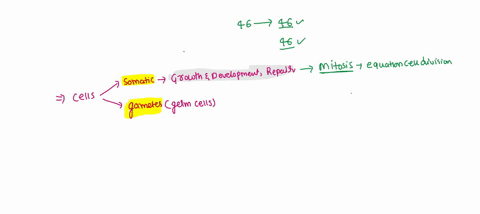 46 → 46 ✓
46 ✓
Somatic → Growth & Development, Repair → Mitosis → equation cell division
⇒ cells
gametes (germ cells)